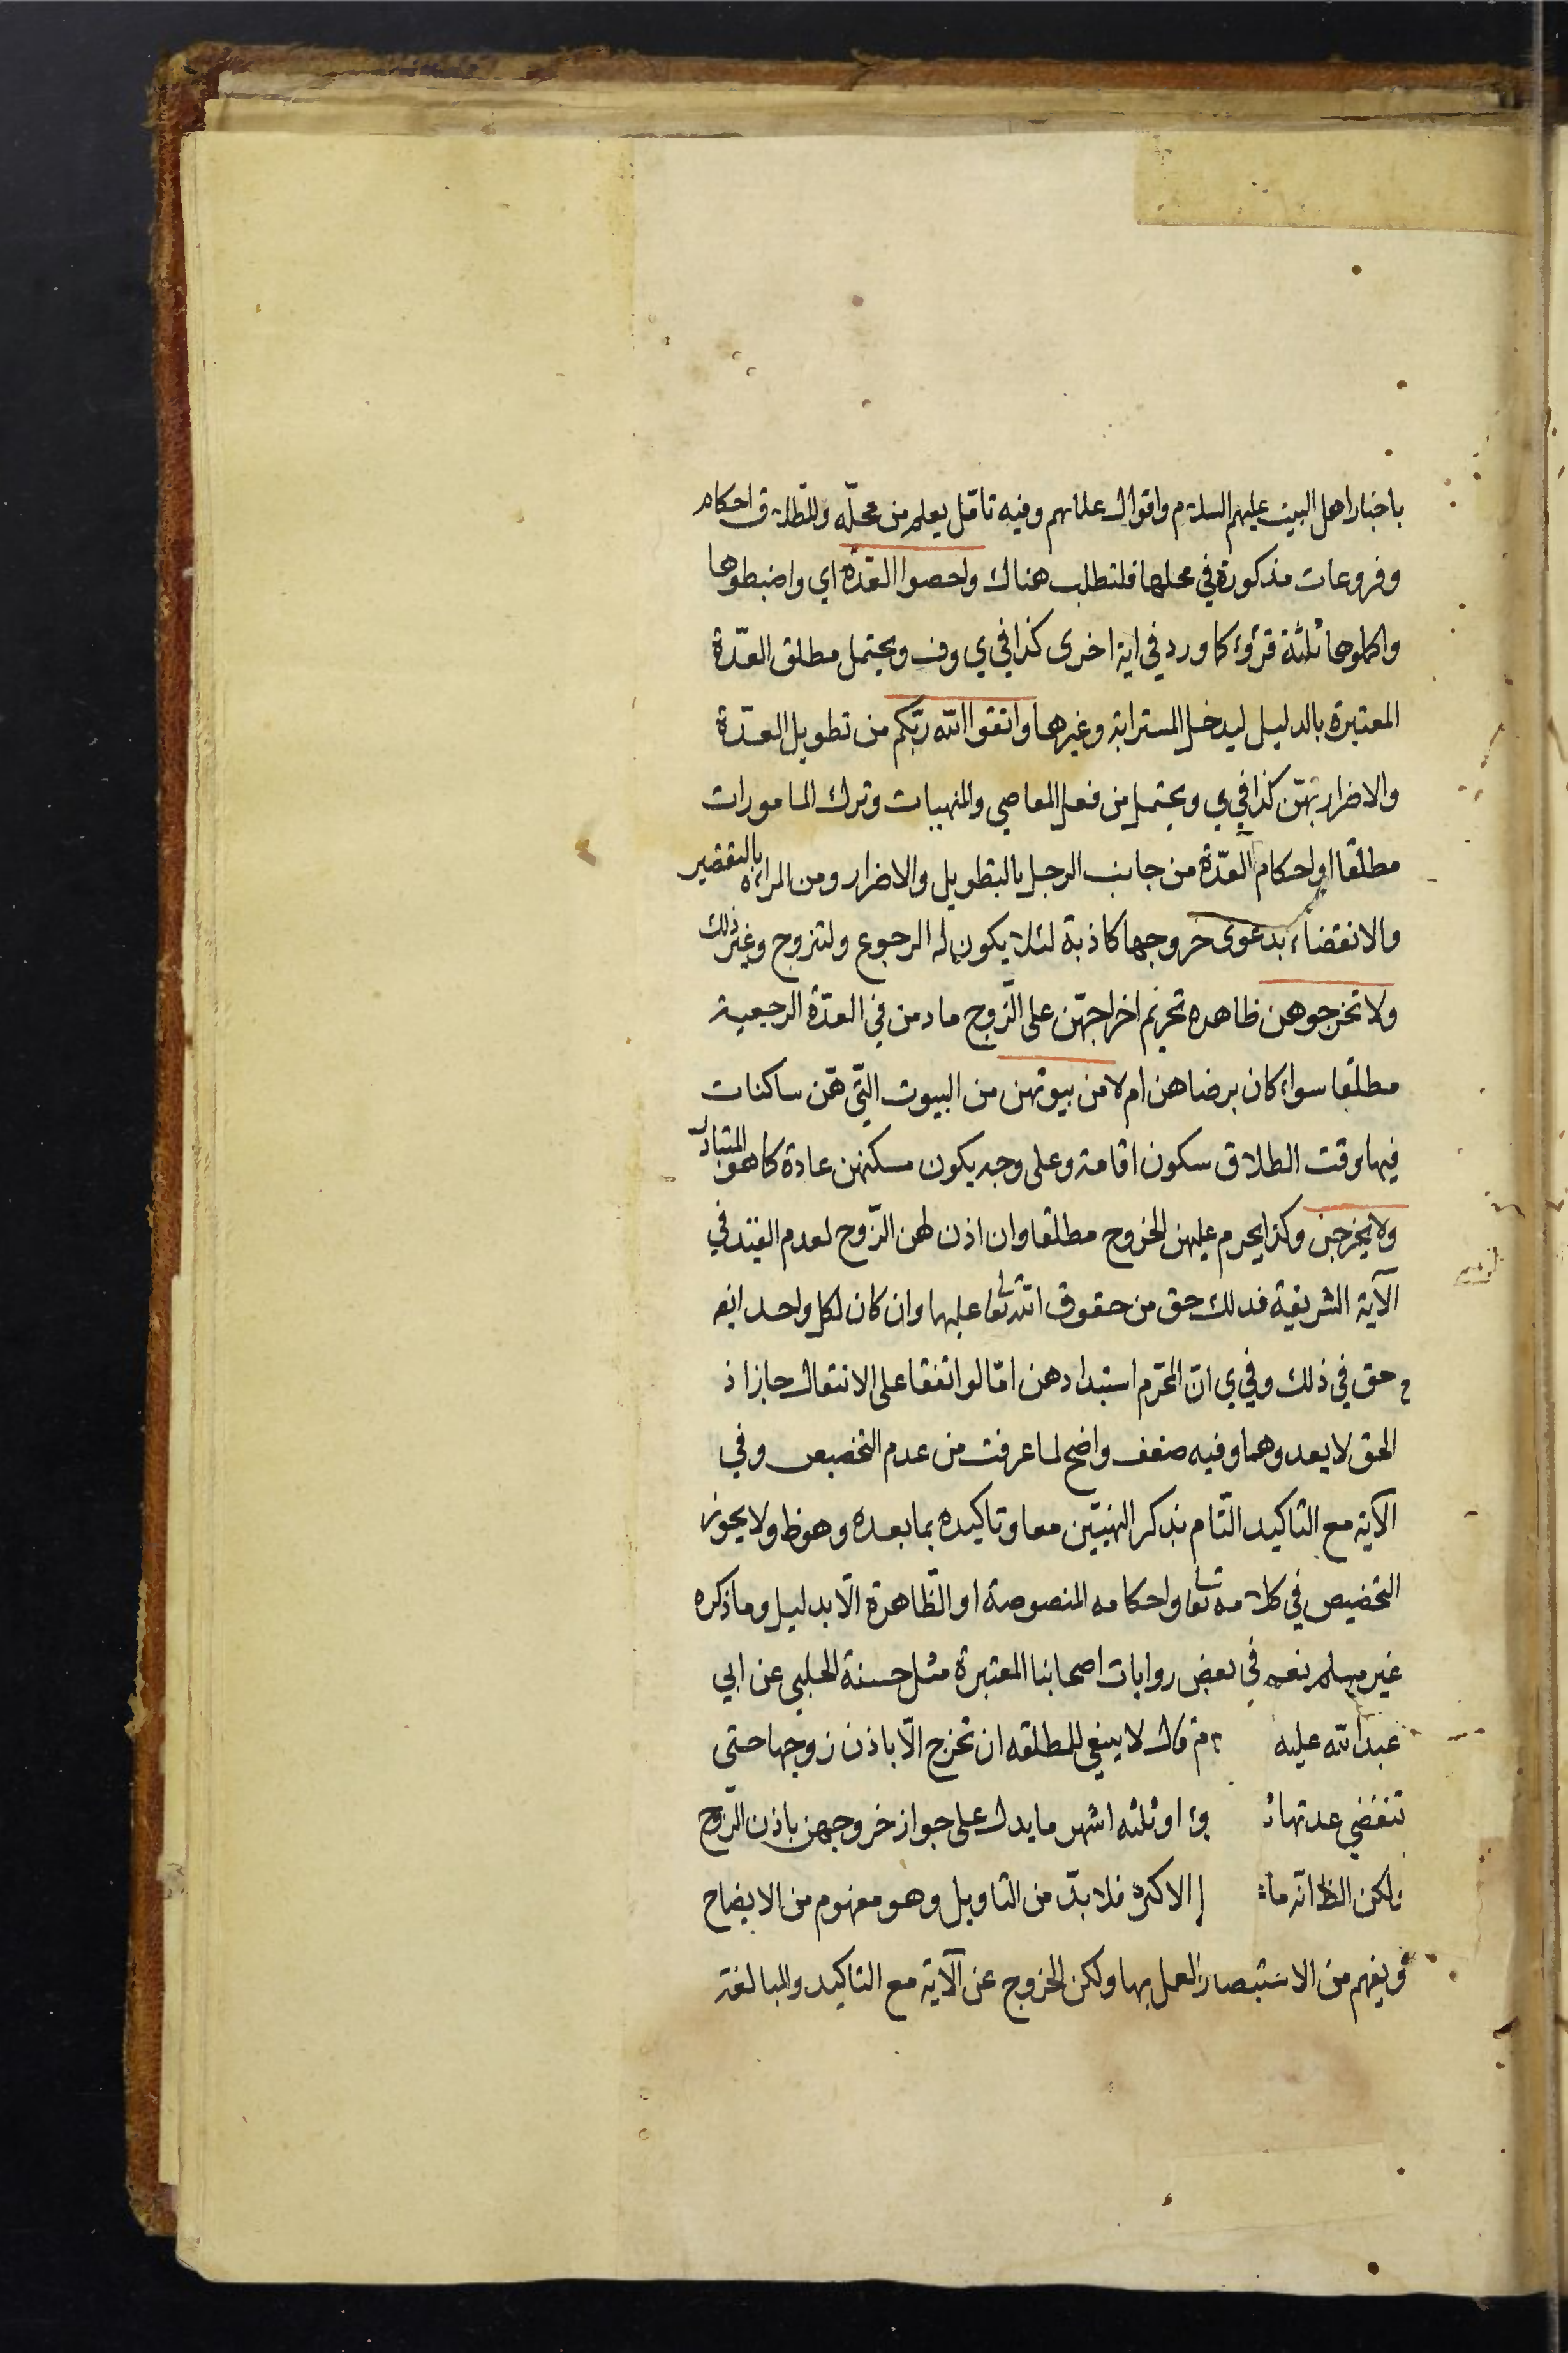 باخبار اهل البيت عليهم السلام واقوال علمائهم وفيه تامّل يعلم من محلّه وللطّلاق احكام
وفروعات مذكورة في محلها فلتطلب هناك واحصوا العدّة اي واضبطوها
واكملوها ثلثة قرؤء كما ورد في اية اخرى كذا في ي وف ويحتمل مطلق العدّة
المعتبرة بالدليل ليدخل المسترابة وغيرها واتقوا الله ربّكم من تطويل العدّة
والاضرار بهنّ كذا في ي ويحتمل من فعل المعاصي والمنهيات وترك المامورات
مطلقا او احكام العدّة من جانب الرجل بالتطويل والاضرار ومن المراة بالتقصير
والانقضاء بدعوى خروجها كاذبة لئلا يكون له الرجوع ولتزوج وغير ذلك
ولا تخرجوهن ظاهره تحريم اخراجهنّ على الزّوج ما دمن في العدّة الرجعية
مطلقا سواء كان برضاهن ام لا من بيوتهن من البيوت الّتي هنّ ساكنات
فيها وقت الطلاق سكون اقامة وعلى وجه يكون مسكنهن عادة كما هو المتبادر
ولا يخرجن وكذا يحرم عليهن الخروج مطلقا وان اذن لهن الزّوج لعدم القيد في
الآية الشريفة فذلك حق من حقوق الله تعا عليها وان كان لكل واحد ايضه
حق في ذلك وفي ي انّ المحرّم استبدادهن امّا لو اتفقا على الانتقال جاز اذ
الحق لا يعدوهما وفيه ضعف واضح لما عرفت من عدم التخصيص وفي
الآية مع التاكيد التّام بذكر النهيين معا وتاكيده بما بعده وهو ظ ولا يجوز
التخصيص في كلامه تعا واحكامه المنصوصة او الظّاهرة الّا بدليل وما ذكره
غير مسلم نعم في بعض روايات اصحابنا المعتبرة مثل حسنة الحلبي عن ابي
عبد الله عليه قال لا ينبغي للمطلقه ان تخرج الّا باذن زوجها حتى
تنقضي عدتها او ثلثه اشهر ما يدل على جواز خروجهن باذن الزّوج
لكن الظ انّه ما الاكثر فلا بدّ من التاويل وهو مفهوم من الايضاح
ويفهم من الاستبصار العمل بها ولكن الخروج عن الآية مع التاكيد والمبالغة